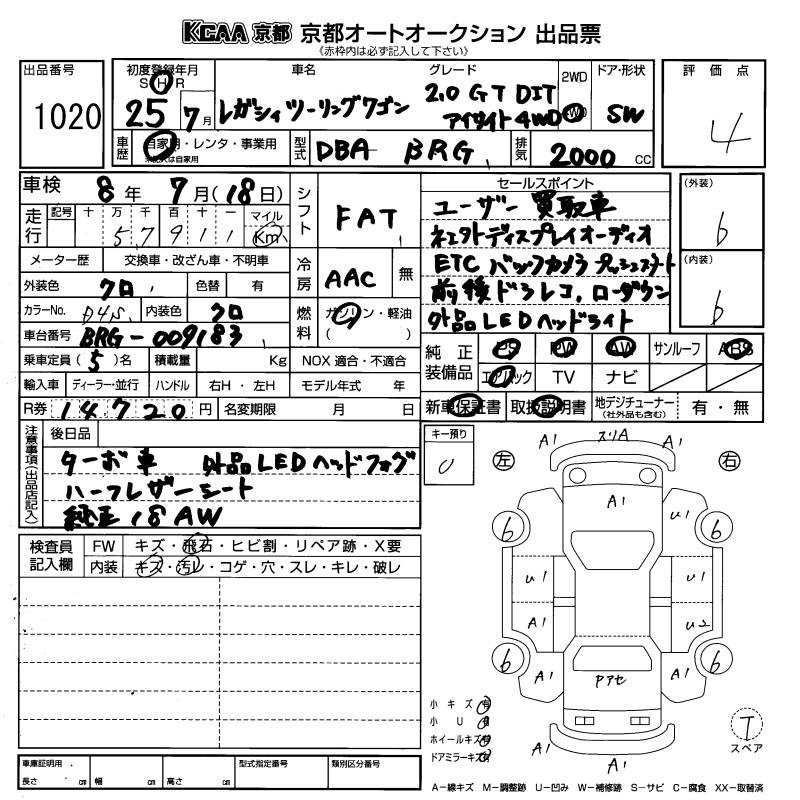 KCAA 京都 京都オートオークション 出品票
《赤枠内は必ず記入して下さい》
出品番号 初度登録年月 車名 グレード 2WD ドア・形状 評価点
S H R
1020 25 7月 レガシィツーリングワゴン 2.0 GT DIT アイサイト 4WD 4WD SW 4
車歴 自家用・レンタ・事業用 型式 DBA BRG 排気 2000 CC
未記入は自家用
車検 8年 7月(18日) シフト FAT セールスポイント (外装)
走行 記号 十 万 千 百 十 一 マイル
5 7 9 1 1 Km
ユーザー買取車
コネクトディスプレイオーディオ
b
メーター歴 交換車・改ざん車・不明車 冷房 AAC 無 ETC バックカメラ プッシュスタート (内装)
外装色 クロ 色替 有 前後ドラレコ, ローダウン
カラーNo. D4S 内装色 クロ 燃料 ガソリン・軽油 ( ) 外品LEDヘッドライト b
車台番号 BRG-009183
純正装備品 PS PW AW サンルーフ ABS
乗車定員(5)名 積載量 Kg NOX 適合・不適合
エアバック TV ナビ
輸入車 ディーラー・並行 ハンドル 右H・左H モデル年式 年
R券 14,720円 名変期限 月 日 新車保証書 取扱説明書 地デジチューナー(社外品も含む) 有・無
注意事項(出品店記入) 後日品 キー預り
ターボ車 外品LEDヘッドフォグ
ハーフレザーシート
純正18AW
0
左 右
A1 スリA A1
A1 U1
6 6
U1 U1
A1 U2
6 6
A1 Pアセ A1
A1 A1
検査員記入欄 FW キズ・飛石・ヒビ割・リペア跡・X要
内装 キズ・汚レ・コゲ・穴・スレ・キレ・破レ
小キズ 有
小 U 有
ホイールキズ 有
ドアミラーキズ 有
T
スペア
車庫証明用 長さ cm 幅 cm 高さ cm 型式指定番号 類別区分番号
A-線キズ M-調整跡 U-凹み W-補修跡 S-サビ C-腐食 XX-取替済